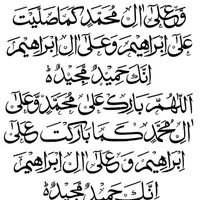 وَّعَلٰى اٰلِ مُحَمَّدٍ كَمَا صَلَّيْتَ
عَلٰى اِبْرَاهِيْمَ وَعَلٰى اٰلِ اِبْرَاهِيْمَ
اِنَّكَ حَمِيْدٌ مَّجِيْدٌ
اَللّٰهُمَّ بَارِكْ عَلٰى مُحَمَّدٍ وَّعَلٰى
اٰلِ مُحَمَّدٍ كَمَا بَارَكْتَ عَلٰى
اِبْرَاهِيْمَ وَعَلٰى اٰلِ اِبْرَاهِيْمَ
اِنَّكَ حَمِيْدٌ مَّجِيْدٌ